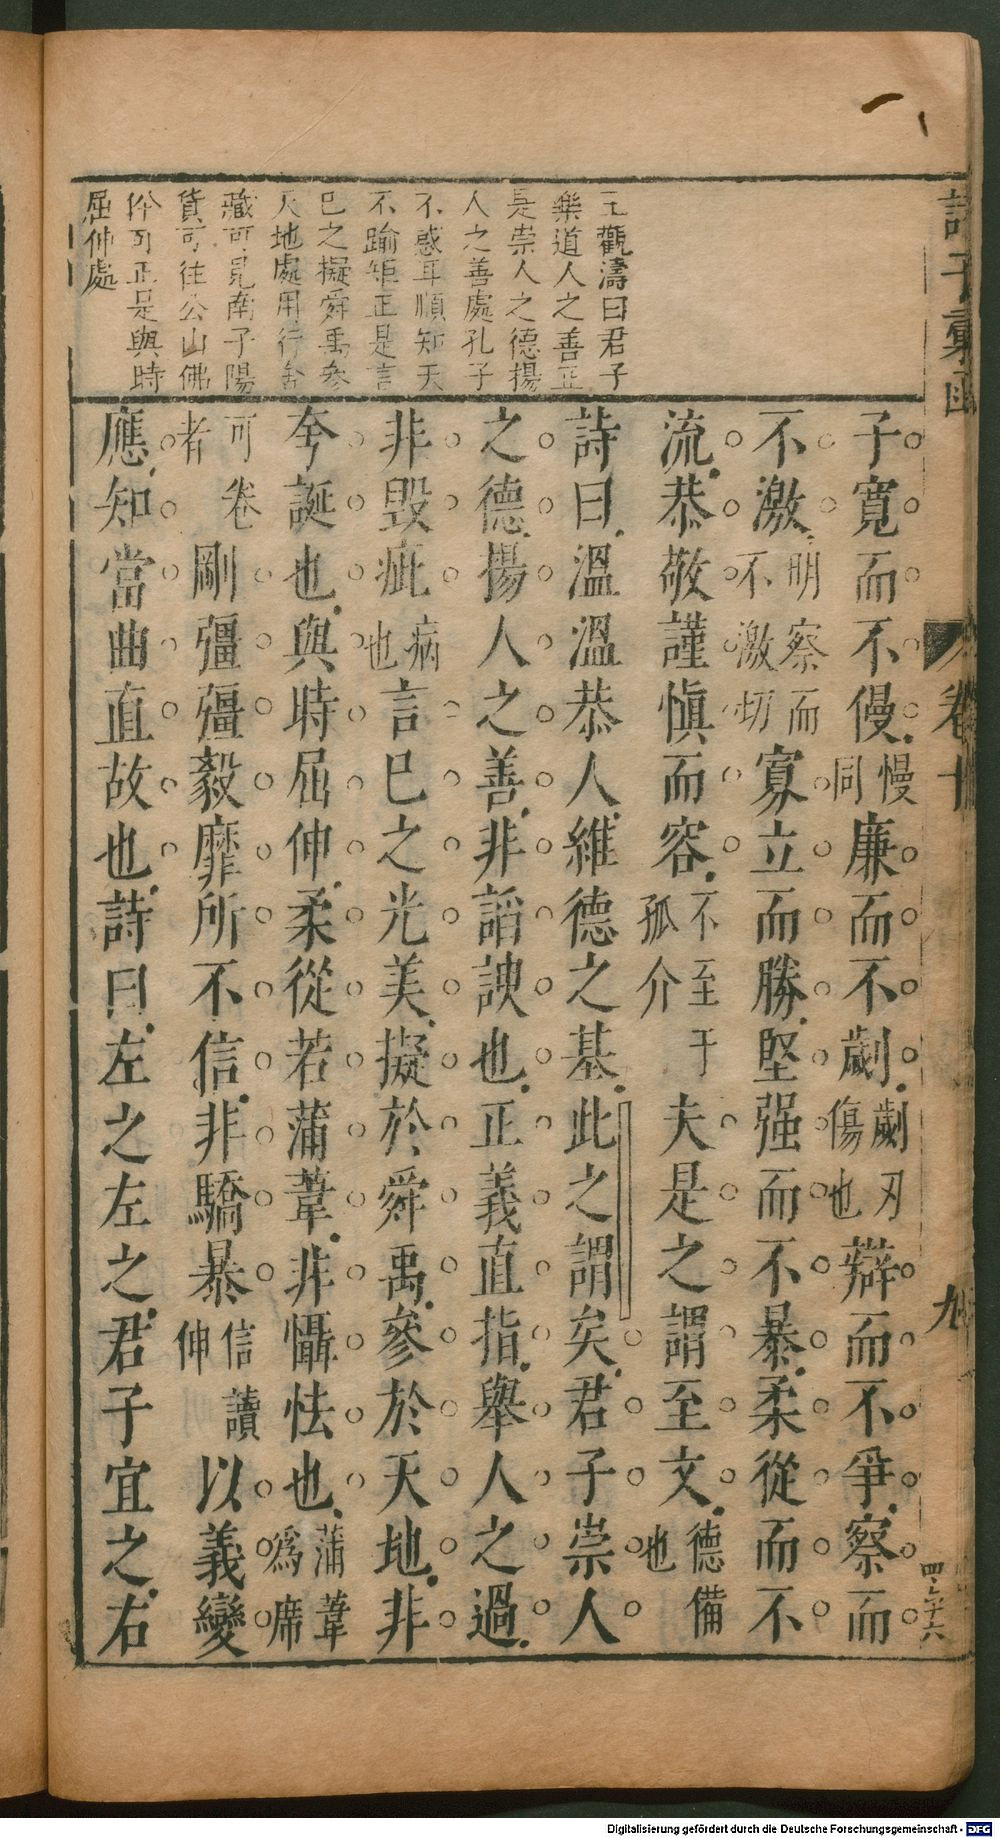 諸子彙函
卷十
九
四ノ六十六
王觀濤曰君子
樂道人之善正
是崇人之德揚
人之善處孔子
不惑耳順知天
不踰矩正是言
已之擬舜禹參
天地處用行舍
藏可見南子陽
貨可往公山佛
肸可正是與時
屈伸處
子寬而不僈慢同廉而不劌劌刃傷也辯而不爭察而
不激明察而不激切寡立而勝堅强而不暴柔從而不
流恭敬謹愼而容不至于孤介夫是之謂至文德備也
詩曰溫溫恭人維德之基此之謂矣君子崇人
之德揚人之善非謟諛也正義直指舉人之過
非毀疵病也言巳之光美擬於舜禹參於天地非
夸誕也與時屈伸柔從若蒲葦非懾怯也蒲葦爲席
可卷者剛彊彊毅靡所不信非驕暴信讀伸以義變
應知當曲直故也詩曰左之左之君子宜之右
Digitalisierung gefördert durch die Deutsche Forschungsgemeinschaft - DFG